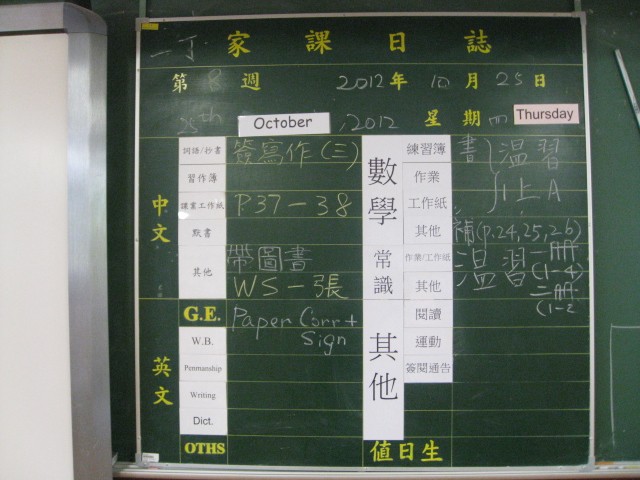 一丁 家課日誌
第 8 週 2012年 10月 25日
25th October, 2012 星期四 Thursday
中文
詞語/抄書 簽寫作(三)
習作簿
課業工作紙 P.37-38
默書
其他 帶圖書
WS一張
英文
G.E. Paper Corr +
Sign
W.B.
Penmanship
Writing
Dict.
OTHS
數學
練習簿 書
作業 溫習
工作紙 上A
其他 補(p.24,25,26)
常識
作業/工作紙 溫習 一冊
(1-4)
其他 二冊
(1-2
其他
閱讀
運動
簽閱通告
值日生